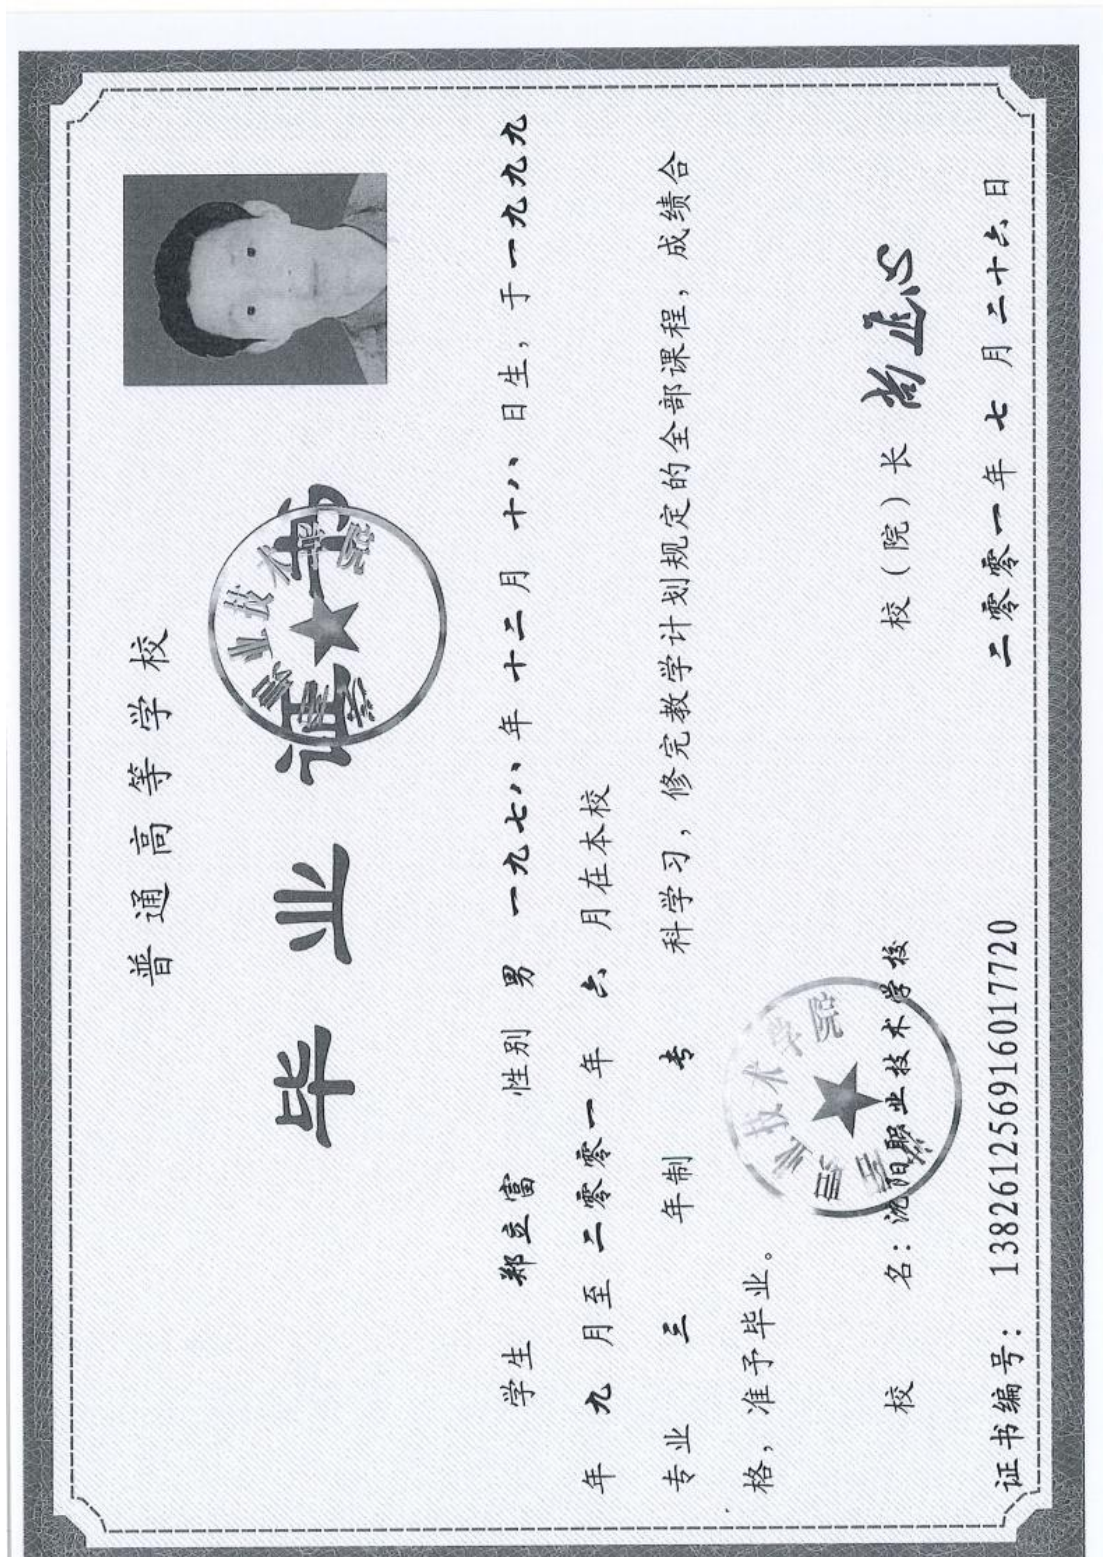 普通高等学校
毕业证书
学生 郑立富 性别 男 一九七八年十二月十八日生，于一九九九
年九月至二零零一年六月在本校
专业 三 年制 专 科学习，修完教学计划规定的全部课程，成绩合
格，准予毕业。
校 名：沈阳职业技术学校
校（院）长
二零零一年七月二十六日
证书编号：138261256916017720
职业技术学院
业技术学院